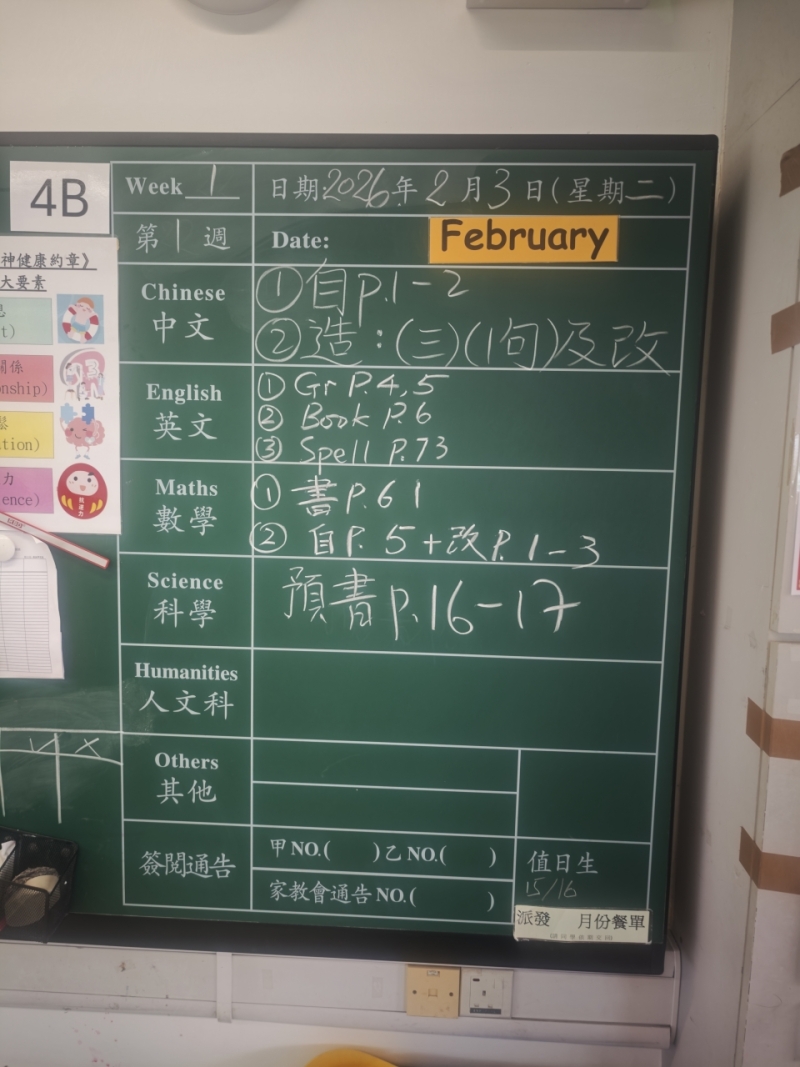 4B
Week 1 日期:2026年2月3日(星期二)
第1週 Date: February
神健康約章》
大要素
t)
關係
onship)
ation)
力
ence)
Chinese
中文
①自p.1-2
②造:(三)(1句)及改
English
英文
① Gr P.4,5
② Book P.6
③ Spell P.73
Maths
數學
① 書P.61
② 自P.5+改P.1-3
Science
科學
預書p.16-17
Humanities
人文科
Others
其他
簽閱通告
甲NO.( )乙NO.( )
家教會通告NO.( )
值日生
15/16
派發 月份餐單